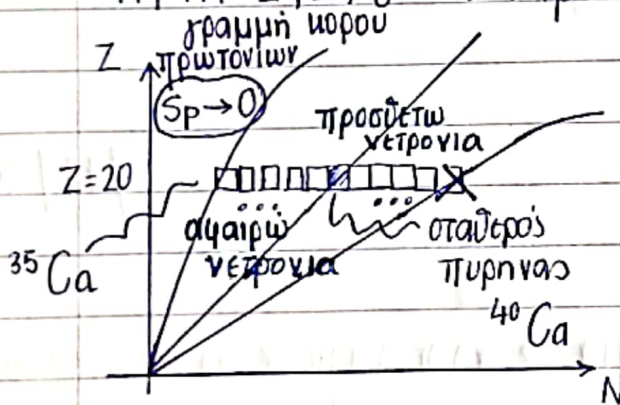 γραμμή κορου
Z πρωτονίων
Sp→0
προσθετω
νετρονια
Z=20
...
...
αφαιρώ
νετρονια
σταθερός
πυρηνας
³⁵Ca
⁴⁰Ca
N